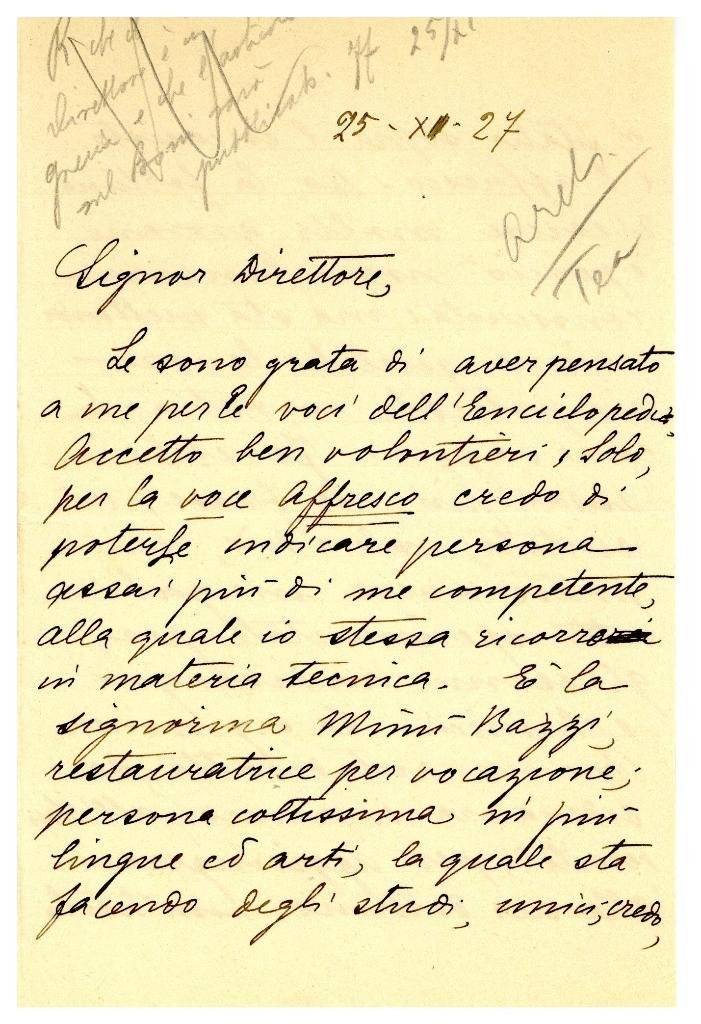 Direttore è
che l'articolo
sul Boni sarà
pubblicato. 25/
25-XII-27
Signor Direttore,
Le sono grata di aver pensato
a me per le voci dell'Enciclopedia,
Accetto ben volontieri, solo,
per la voce affresco credo di
poterLe indicare persona
assai più di me competente,
alla quale io stessa ricorro
in materia tecnica. È la
signorina Mimì Bazzi,
restauratrice per vocazione;
persona coltissima in più
lingue ed arti, la quale sta
facendo degli studi, unici, credo,